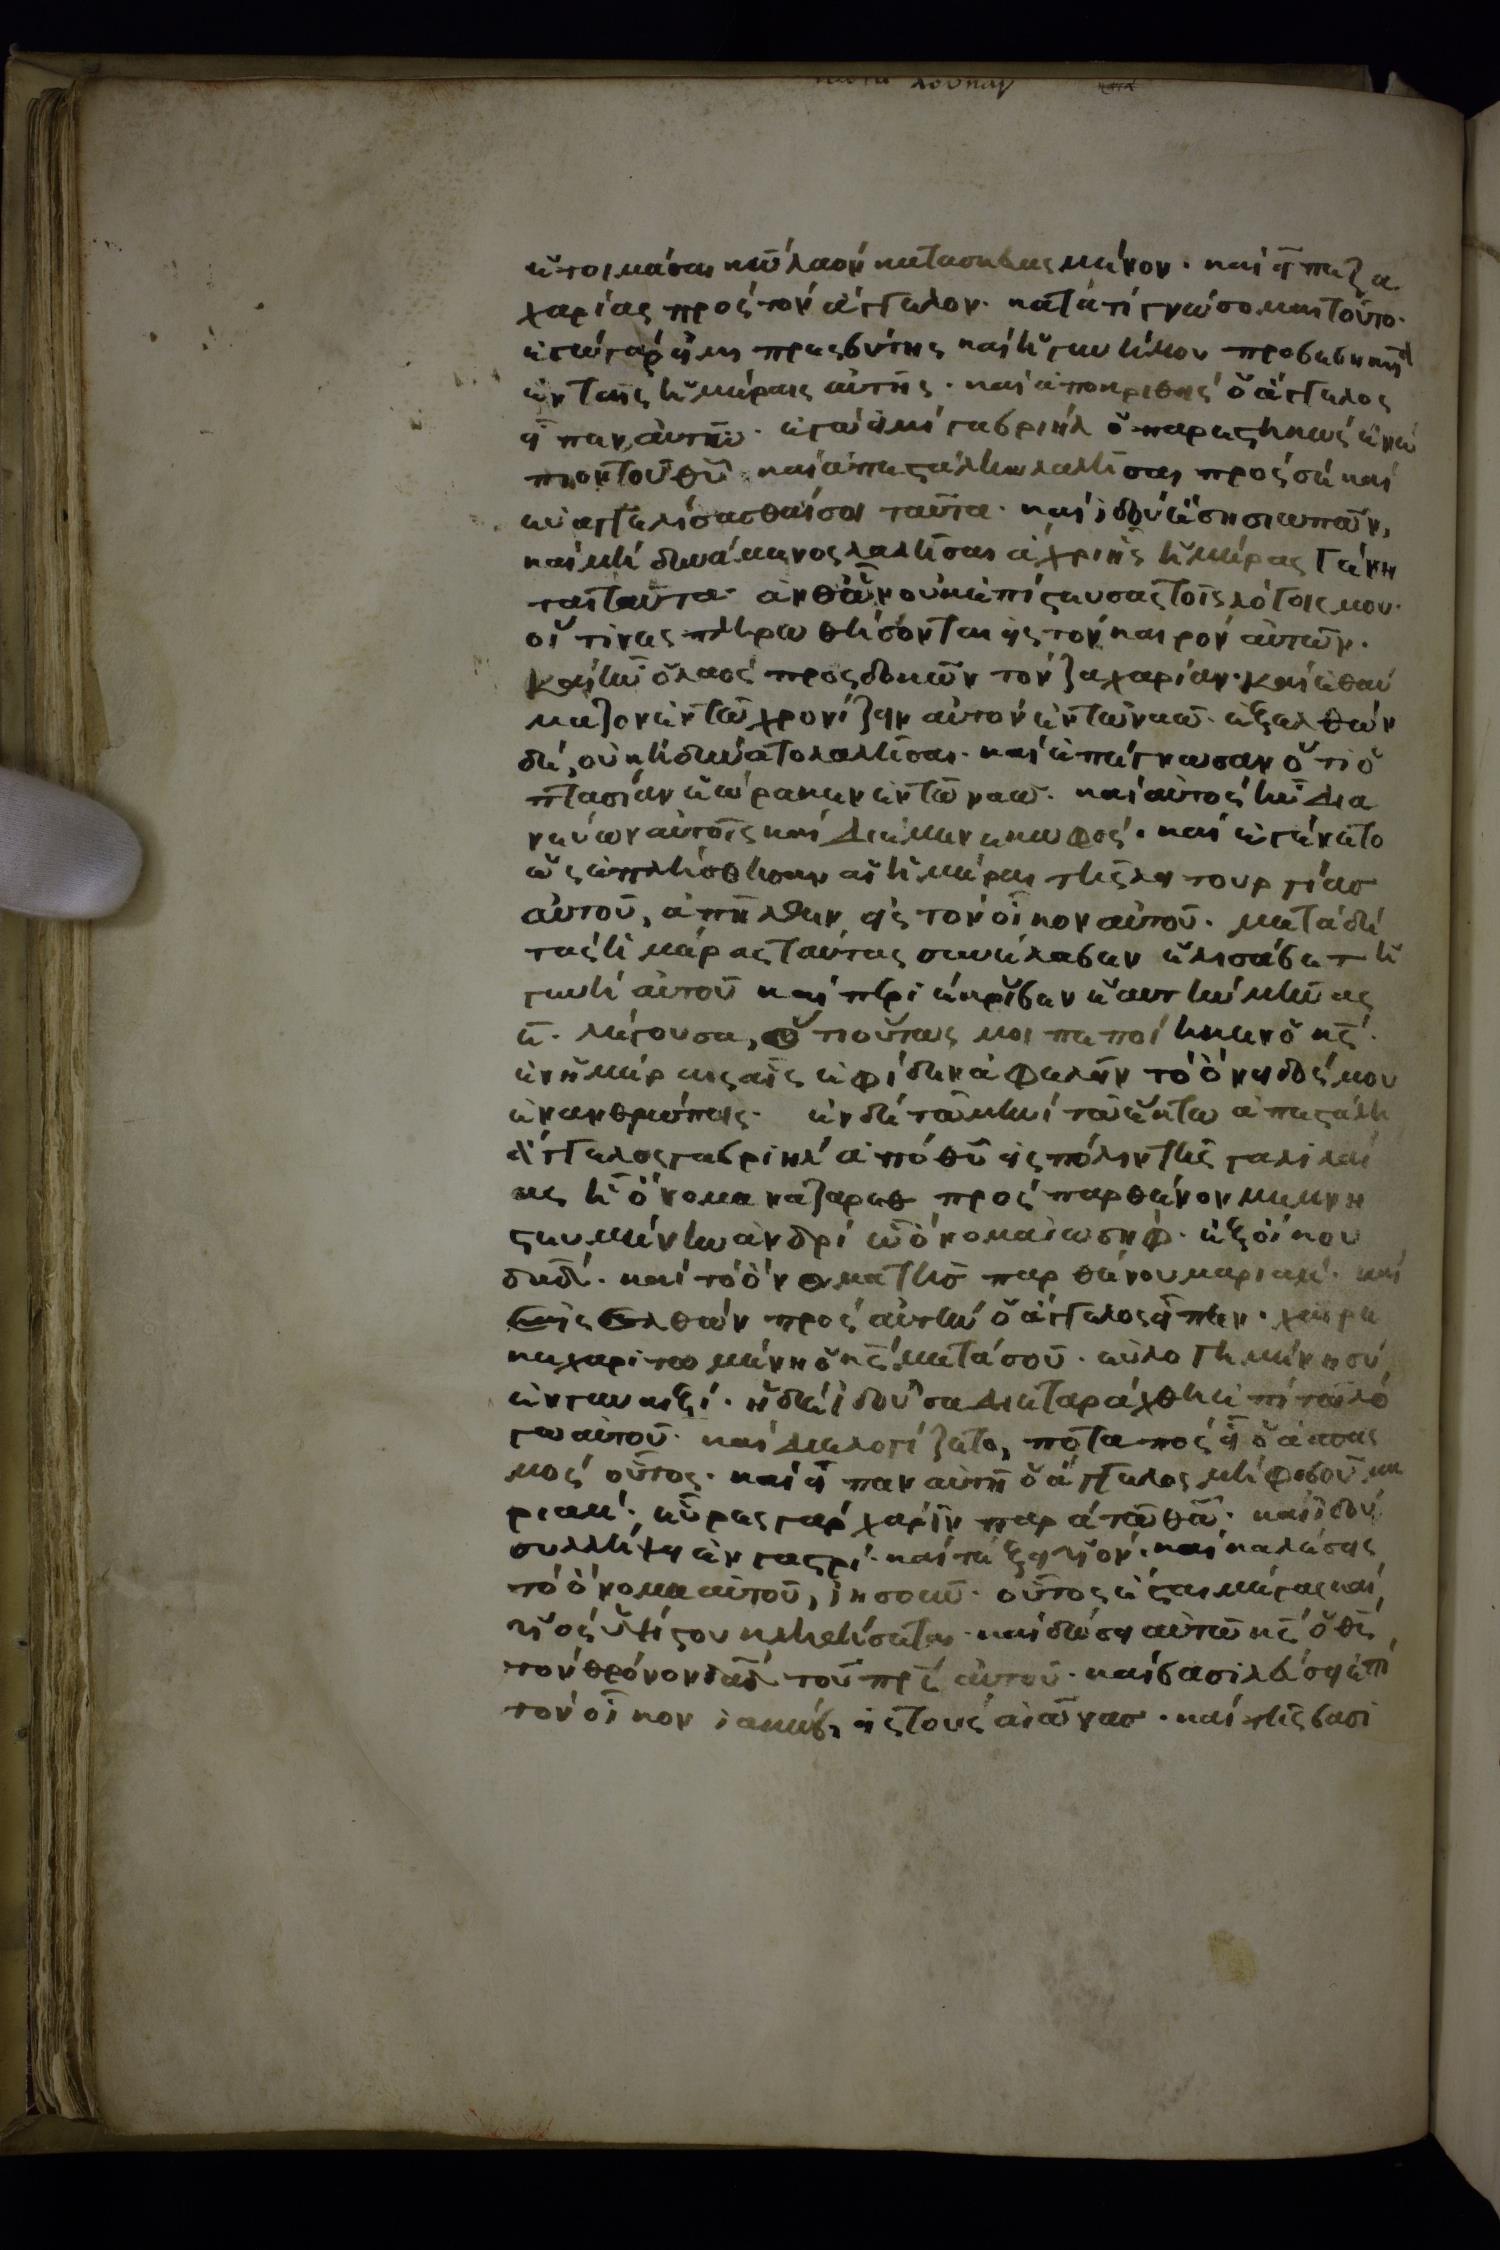 κατα λουκαν
ἑτοιμάσαι κῶ λαὸν κατασκευασμένον. καὶ εἶπε ζα
χαρίας πρὸς τὸν ἄγγελον. κατὰ τί γνώσομαι τοῦτο.
ἐγὼ γάρ εἰμι πρεσβύτης καὶ ἡ γυνή μου προβεβηκυῖα
ἐν ταῖς ἡμέραις αὐτῆς. καὶ ἀποκριθεὶς ὁ ἄγγελος
εἶπεν αὐτῶ. ἐγώ εἰμι γαβριὴλ ὁ παρεστηκὼς ἐνώ
πιον τοῦ θῦ καὶ ἀπεστάλην λαλῆσαι πρὸς σὲ καὶ
εὐαγγελίσασθαί σοι ταῦτα. καὶ ἰδοὺ ἔση σιωπῶν,
καὶ μὴ δυνάμενος λαλῆσαι ἄχρι ἧς ἡμέρας γένη
ται ταῦτα. ἀνθ' ὧν οὐκ ἐπίστευσας τοῖς λόγοις μου.
οἵτινες πληρωθήσονται εἰς τὸν καιρὸν αὐτῶν.
καὶ ἦν ὁ λαὸς προσδοκῶν τὸν ζαχαρίαν. καὶ ἐθαύ
μαζον ἐν τῶ χρονίζειν αὐτὸν ἐν τῶ ναῶ. ἐξελθὼν
δὲ, οὐκ ἠδύνατο λαλῆσαι. καὶ ἐπέγνωσαν ὅτι ὀ
πτασίαν ἑώρακεν ἐν τῶ ναῶ. καὶ αὐτὸς ἦν δια
νεύων αὐτοῖς καὶ διέμενε κωφός. καὶ ἐγένετο
ὡς ἐπλήσθησαν αἱ ἡμέραι τῆς λειτουργίας
αὐτοῦ, ἀπῆλθεν εἰς τὸν οἶκον αὐτοῦ. μετὰ δὲ
τὰς ἡμέρας ταύτας συνέλαβεν ἐλισάβετ ἡ
γυνὴ αὐτοῦ καὶ περιέκρυβεν ἑαυτὴν μῆνας
ε. λέγουσα, ὅτι οὕτως μοι πεποίηκεν ὁ κς.
ἐν ἡμέραις αἷς ἐφίδεν ἀφελεῖν τὸ ὄνειδός μου
ἐν ἀνθρώποις. ἐν δὲ τῶ μηνὶ τῶ ἕκτω ἀπεστάλη
ὁ ἄγγελος γαβριὴλ ἀπὸ θῦ εἰς πόλιν τῆς γαλιλαί
ας ἧ ὄνομα ναζαρεθ πρὸς παρθένον μεμνη
στευμένην ἀνδρὶ ὧ ὄνομα ἰωσὴφ. ἐξ οἴκου
δαδ. καὶ τὸ ὄνομα τῆς παρθένου μαριαμ. καὶ
εἰσελθὼν πρὸς αὐτὴν ὁ ἄγγελος εἶπεν. χαῖρε
κεχαριτωμένη ὁ κς μετὰ σοῦ. εὐλογημένη σὺ
ἐν γυναιξί. ἡ δὲ ἰδοῦσα διεταράχθη ἐπὶ τῶ λό
γω αὐτοῦ. καὶ διελογίζετο, ποταπὸς εἴη ὁ ἀσπασ
μὸς οὗτος. καὶ εἶπεν αὐτῆ ὁ ἄγγελος μὴ φοβοῦ μα
ριαμ. εὗρες γὰρ χάριν παρὰ τῶ θῶ. καὶ ἰδοὺ
συλλήψη ἐν γαστρί. καὶ τέξη υἱόν. καὶ καλέσεις
τὸ ὄνομα αὐτοῦ, ἰησοῦν. οὗτος ἔσται μέγας καὶ
υἱὸς ὑψίστου κληθήσεται. καὶ δώσει αὐτῶ κς ὁ θς
τὸν θρόνον δαδ τοῦ πρς αὐτοῦ. καὶ βασιλεύσει ἐπὶ
τὸν οἶκον ἰακώβ, εἰς τοὺς αἰῶνας. καὶ τῆς βασι